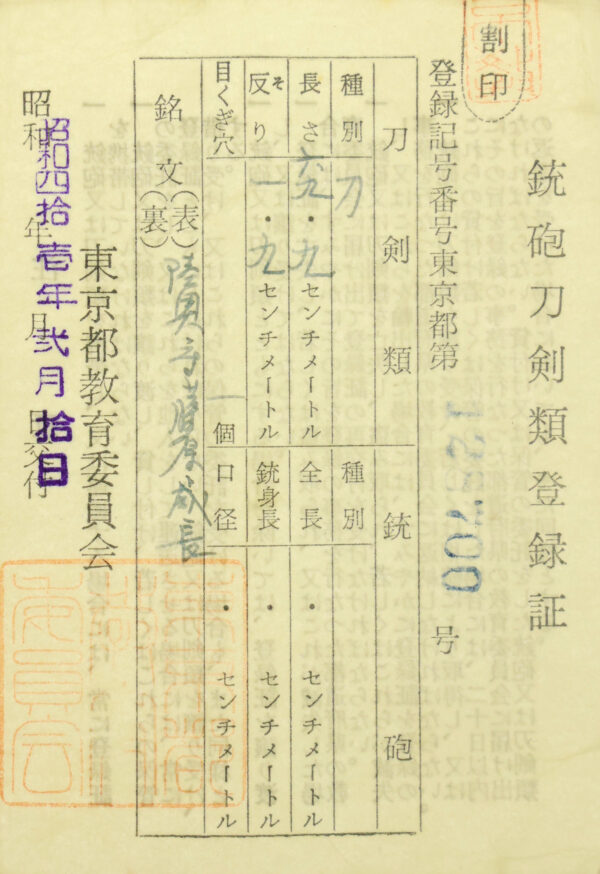 銃砲刀剣類登録証
割印
登録記号番号東京都第 号
刀剣類
種別 刀
長さ 六九・九センチメートル
反り そ 一・九センチメートル
目くぎ穴 一個
銃砲
種別
全長 ・センチメートル
銃身長 ・センチメートル
口径 ・センチメートル
銘文(表)(裏) 陸奥守藤原歳長
東京都教育委員会
昭和 年 月 日交付
昭和四拾壹年弐月拾日